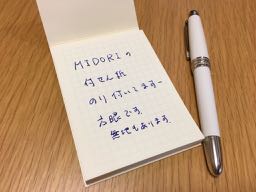 MIDORIの
付せん紙
のり付いてますー
方眼です。
無地もあります。